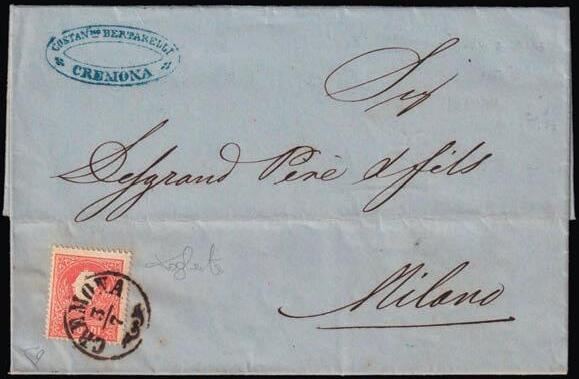 COSTAN.no BERTARELLI
CREMONA
Sig
Desgrand Père & fils
Milano
CREMONA
3/7